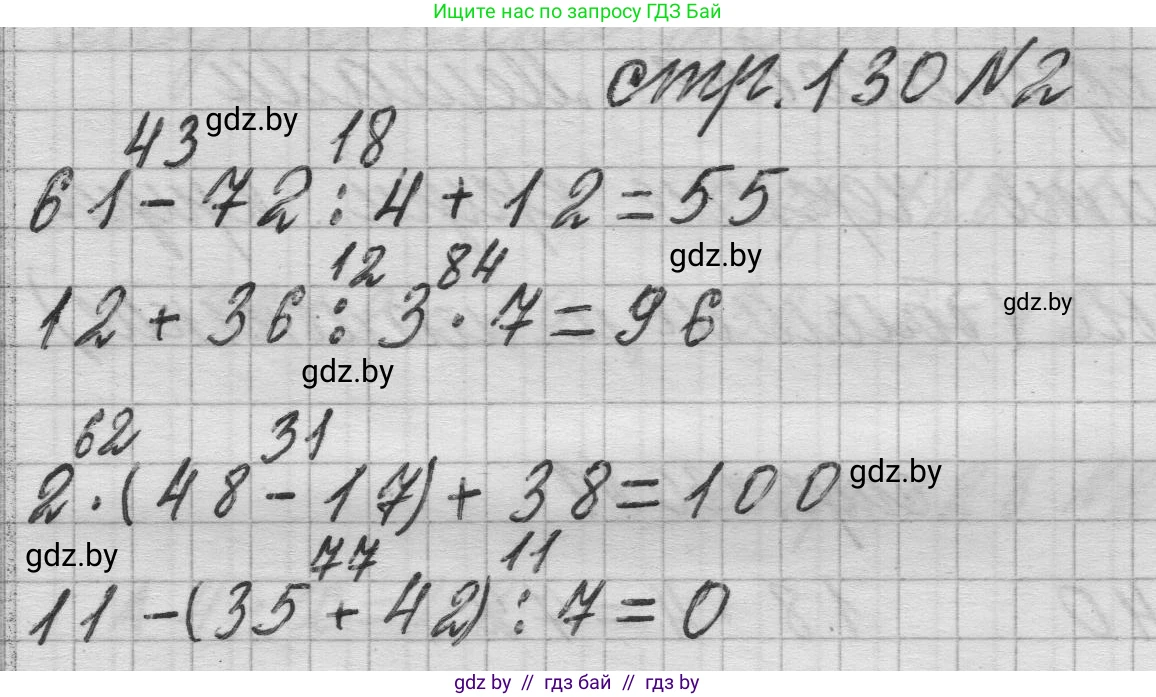 Ищите нас по запросу ГДЗ Бай
стр. 130 №2
43 gdz.by 18
61 - 72 : 4 + 12 = 55
gdz.by
12 84
12 + 36 : 3 · 7 = 96
gdz.by
gdz.by
62 31
2 · (48 - 17) + 38 = 100
gdz.by
gdz.by
77 11
11 - (35 + 42) : 7 = 0
gdz by // гдз бай // гдз by